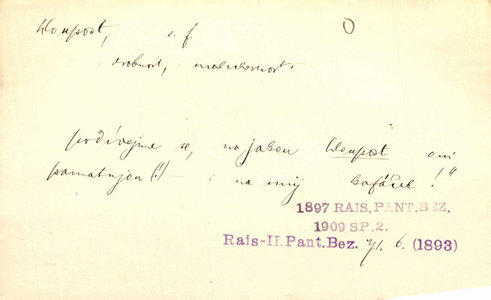 hloupost, s. f. O
drobnost, malichernost.
podívejme se, na jakou hloupost oni
pamatujou (!) — i na můj kafíček!“
1897 RAIS, PANT. BEZ.
1909 SP. 2.
Rais-II. Pant. Bez. 71. 6. (1893)